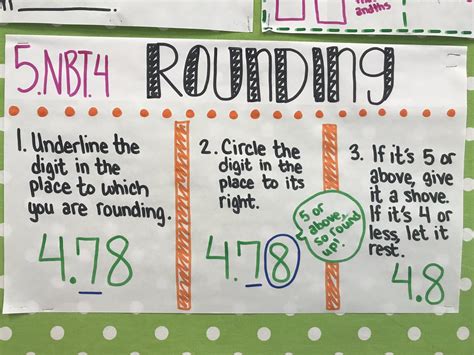 that
andths
5.NBT.4 ROUNDING
1. Underline the
digit in the
place to which
you are rounding.
4.78
2. Circle the
digit in the
place to its
right.
4.78
5 or
above,
so round
up!
3. If it's 5 or
above, give
it a shove.
If it's 4 or
less, let it
rest.
4.8